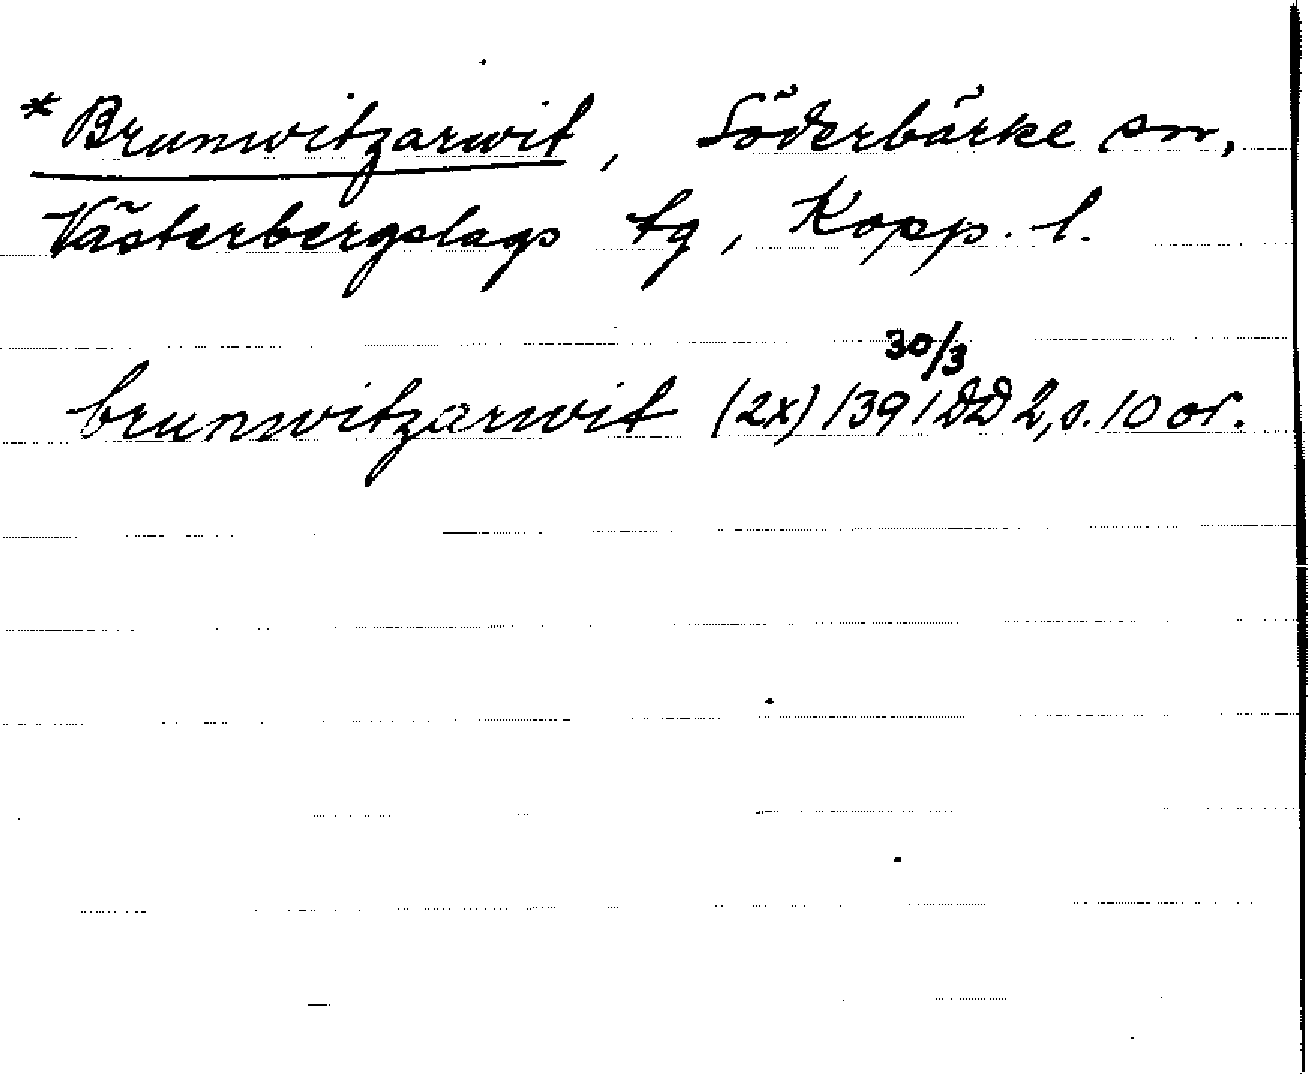 *Brunwitzarwit, Söderbärke sn,
Västerbergslags tg, Kopp. l.
30/3
brunwitzarwit (2x) 1391 DD 2, s. 10 or.